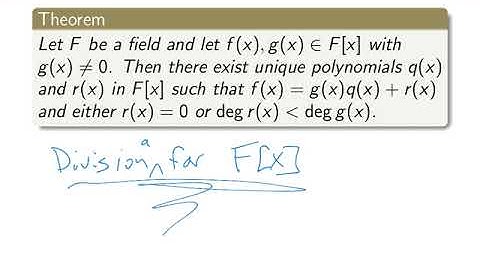 Theorem
Let F be a field and let f(x), g(x) ∈ F[x] with
g(x) ≠ 0. Then there exist unique polynomials q(x)
and r(x) in F[x] such that f(x) = g(x)q(x) + r(x)
and either r(x) = 0 or deg r(x) < deg g(x).
Division^a for F[x]